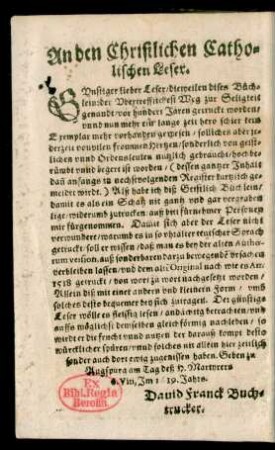 An den Christlichen Catho-
lischen Leser.
GUnstiger lieber Leser/dieweilen dises Büch-
lein/der Vortreffelichest Weg zur Seligkeit
genandt/vor hundert Jaren getruckt worden/
vnnd nun mehr vor lange zeit hero schier kein
Exemplar mehr vorhanden gewesen/sollliches aber je-
derzeit von vilen frommen Hertzen/sonderlich von geist-
lichen vnnd Ordensleuten nutzlich gebraucht/hoch be-
rümbt vnd begert ist worden/(dessen gantzer Inhalt
dañ anfangs in nachfolgendem Register kurtzlich ge-
meldet wirdt.) Also habe ich diß Geistlich Büchlein/
damit es als ein Schatz nit gantz vnd gar vergraben
lige/widerumb zutrucken auß bitt fürnehmer Personen
mir fürgenommen. Damit sich aber der Leser nicht
verwundere/warumb es in so alter teutscher Sprach
getruckt/soll er wissen/daß man es bey der alten Author
verbleiben lassen/vnd dem alten Original nach wie es An.
1518 getruckt/von wort zu wort nachgesetzt worden/
Allein diß mit einer andern vnd kleinern Form/vmb
solches desto bequemer bey sich zutragen. Der günstige
Leser wölle es fleissig lesen/andächtig betrachten/vnd
auffs möglichst demselben gleichförmig nachleben/so
wird er die frucht vnnd nutzen der darauß kompt desto
würcklicher spüren/vnnd solches nit allein hier zeitlich
sonder auch dort ewig zugeniessen haben. Geben zu
Augspurg am Tag deß H. Martyrers
Im 1619. Jahrn.
David Franck Buch-
trucker.
Ex
Bibl. Regia
Berolin.